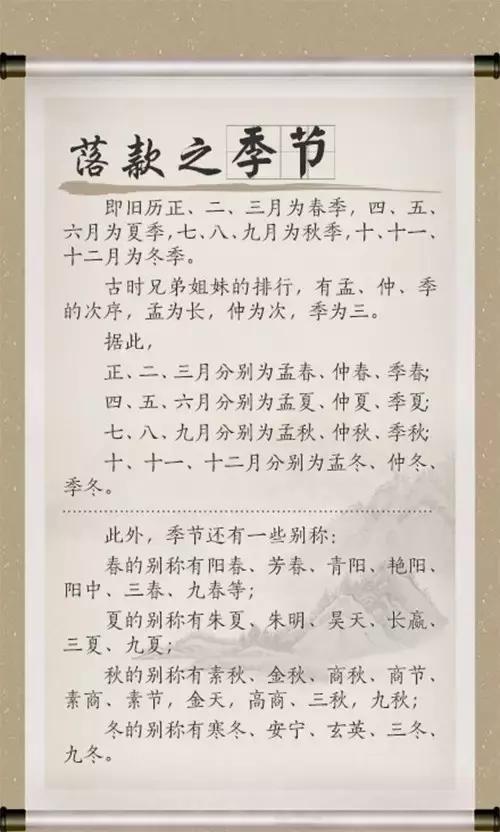 落款之季节
即旧历正、二、三月为春季，四、五、
六月为夏季，七、八、九月为秋季，十、十一、
十二月为冬季。
古时兄弟姐妹的排行，有孟、仲、季
的次序，孟为长，仲为次，季为三。
据此，
正、二、三月分别为孟春、仲春、季春；
四、五、六月分别为孟夏、仲夏、季夏；
七、八、九月分别为孟秋、仲秋、季秋；
十、十一、十二月分别为孟冬、仲冬、
季冬。
此外，季节还有一些别称：
春的别称有阳春、芳春、青阳、艳阳、
阳中、三春、九春等；
夏的别称有朱夏、朱明、昊天、长赢、
三夏、九夏；
秋的别称有素秋、金秋、商秋、商节、
素商、素节，金天，高商、三秋，九秋；
冬的别称有寒冬、安宁、玄英、三冬、
九冬。